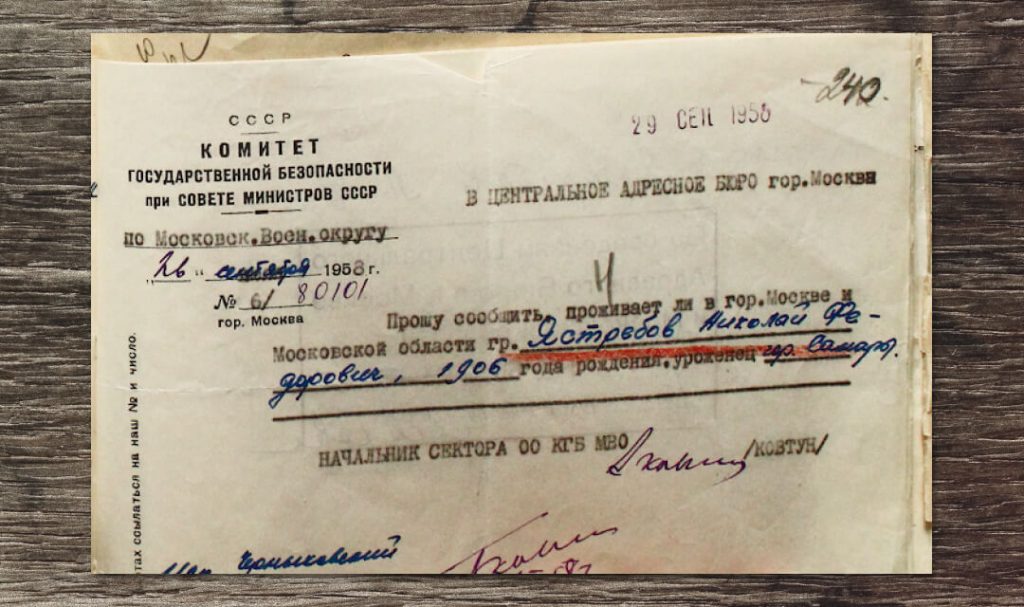 240.
29 СЕН 1958
СССР
КОМИТЕТ
ГОСУДАРСТВЕННОЙ БЕЗОПАСНОСТИ
при СОВЕТЕ МИНИСТРОВ СССР
В ЦЕНТРАЛЬНОЕ АДРЕСНОЕ БЮРО гор.Москвы
по Московск.Воен.округу
"26" сентября 1958 г.
№ 6/ 80101
гор. Москва
Прошу сообщить, проживает ли в гор.Москве и
Московской области гр. Ястребов Николай Фе-
дорович, 1906 года рождения, уроженец гр. Самары.
НАЧАЛЬНИК СЕКТОРА ОО КГБ МВО /КОВТУН/
ссылаться на наш № и число.